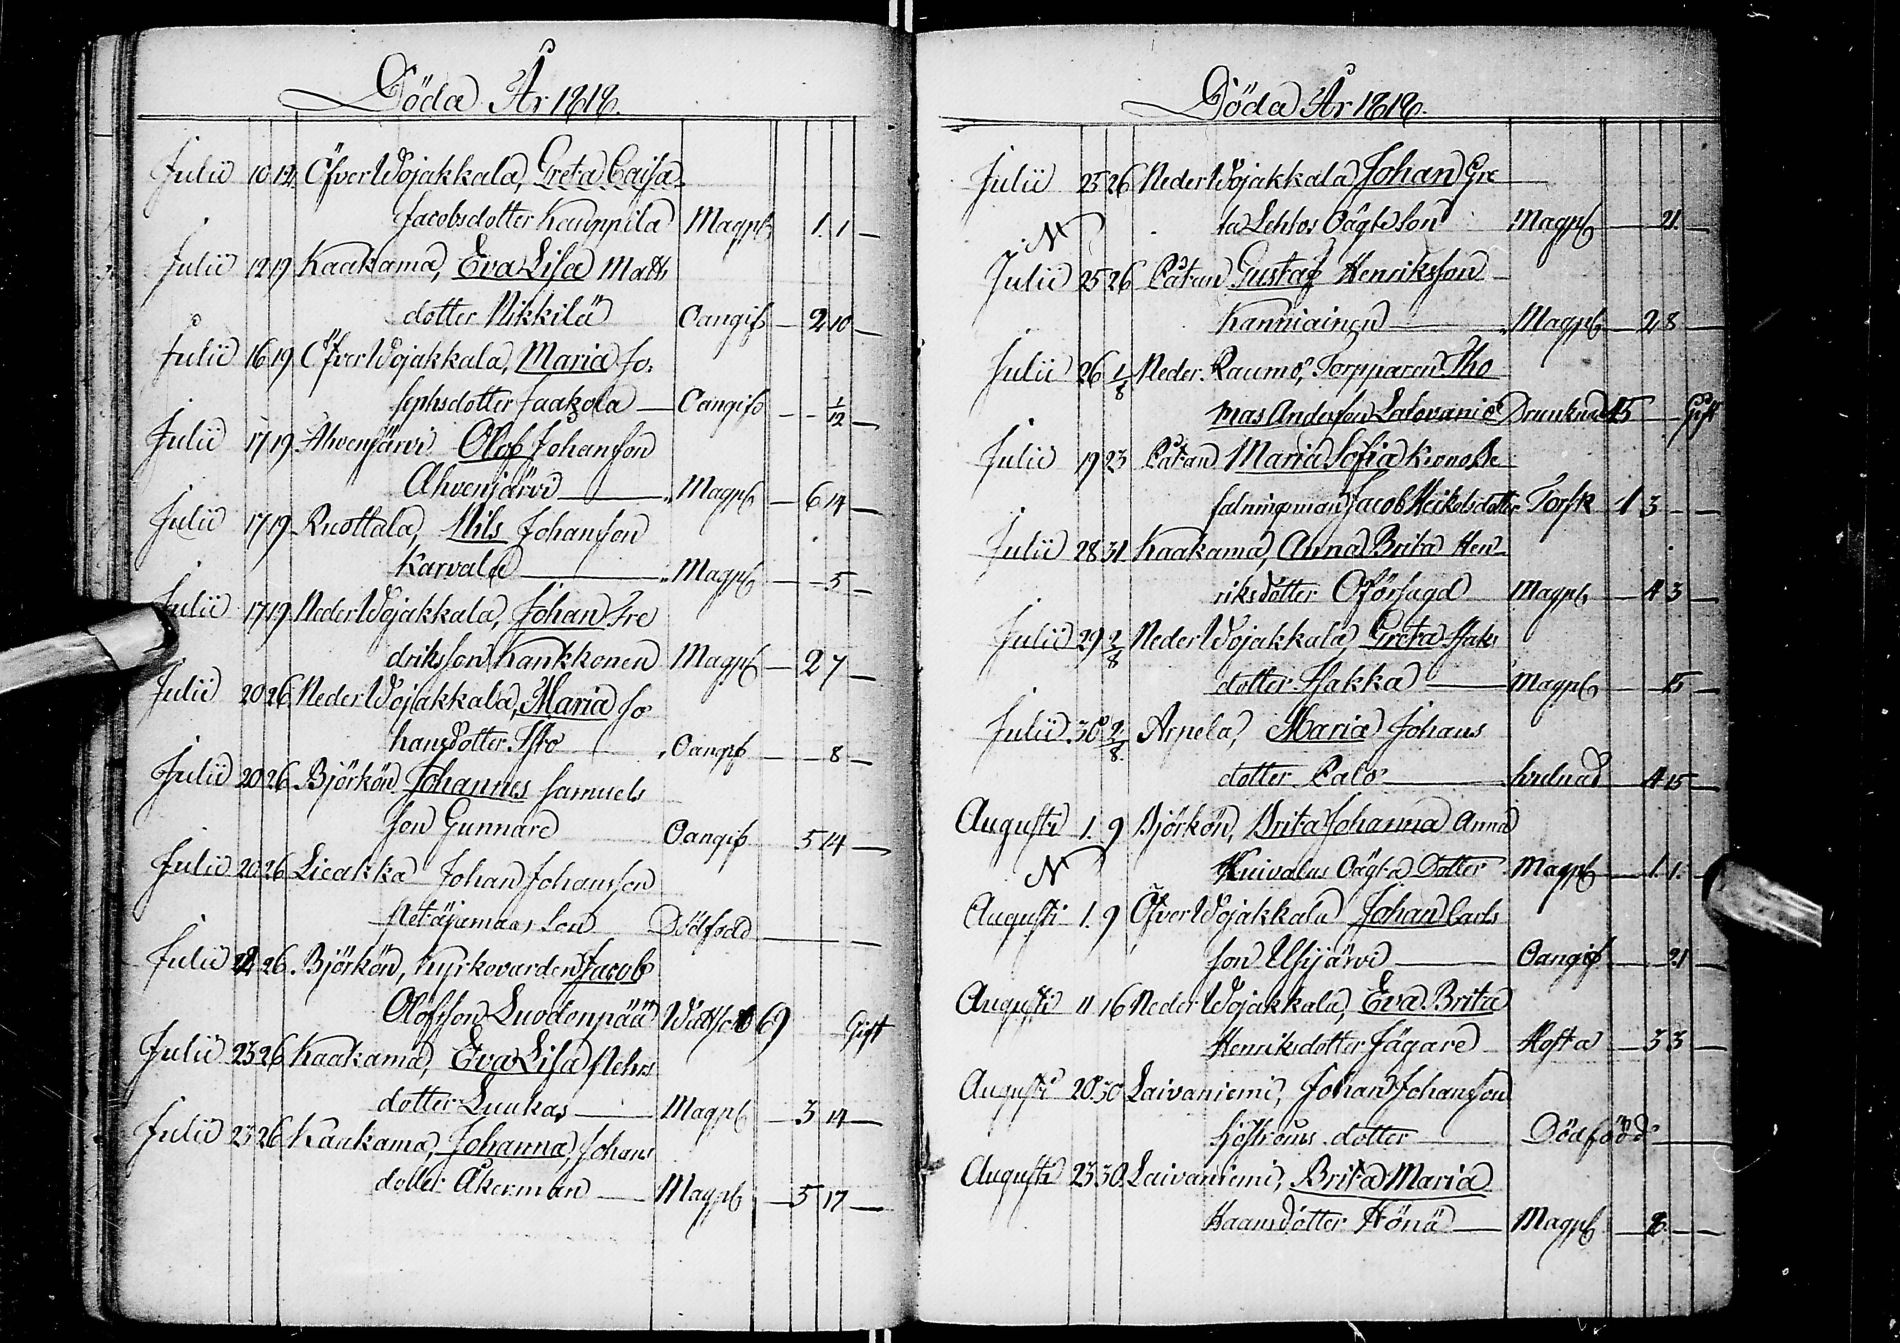 Döda År 1818.
Julii 10 12 ÖfverWojakkala, Greta Caisa
Jacobsdotter Kauppila Magpl 1. 1 —
Julii 12 19 Kaakama, Eva Lisa Matts
dotter Nikkilä Oangif — 2 10 —
Julii 16 19 ÖfverWojakkala, Maria Jo,
sephsdotter Jaakola — Oangif — — 1/12 —
Julii 17 19 Ahvenjärvi Olof Johansson
Ahvenjärvi — Magpl — 6 14 —
Julii 17 19 Ruottala, Nils Johansson
Karvala — Magpl — — 5 —
Julii 17 19 NederWojakkala, Johan Fre
driksson Kankkonen Magpl — 2 7 —
Julii 20 26 NederWojakkala, Maria Jo
hansdotter — Oangif — — 8 —
Julii 20 26 Björkön Johannes Samuels
son Gunnare Oangif 5 14 —
Julii 20 26 Lieakka Johan Johansson
son Dödfödd —
Julii 22 26. Björkön, Kyrkovarden Jacob
Olofsson Luodonpää 69 Gift
Julii 23 26 Kaakama, Eva Lisa
dotter Luukas — Magpl — 3 14 —
Julii 23 26 Kaakama, Johanna, Johans
dotter Åkerman — Magpl — 5 17 —
Döda År 1818.
Julii 25 26 NederWojakkala Johan Gre
N ta Lehtos Oägta Son Magpl — 21. —
Julii 25 26 Gustaf Henriksson
Kanniainen — Magpl — 2 8 —
Julii 26 1/8 Neder Raumo, Torpparen Tho
mas Andersson Drunknad 45 — Gift
Julii 19 23 Maria Sofia Krono Be
falningsman Jacob Heikelsdotter Torsk 1 3 —
Julii 28 31 Kaakama, Anna Brita Hen
riksdotter Oförsagd Magpl — 4 3 —
Julii 29 2/8 NederWojakkala Greta Isaks
dotter — Magpl — 15 —
Julii 30 2/8. Arpela, Maria Johans
dotter Palo — 4 15 —
Augusti 1. 9 Björkön, Brita Johanna Anna
N Kuivalas Oägta Dotter Magpl — 1. 1.
Augusti 1. 9 ÖfverWojakkala Johan Carls
son — Oangif — 21 —
Augusti 11 16 NederWojakkala, Eva Brita
Henriksdotter Jägare Hosta — 3 3 —
Augusti 20 30 Laivaniemi, Johan Johansson
dotter — Dödfödd —
Augusti 23 30 Laivaniemi, Brita Maria
Haansdotter Hönä — Magpl — 8. —